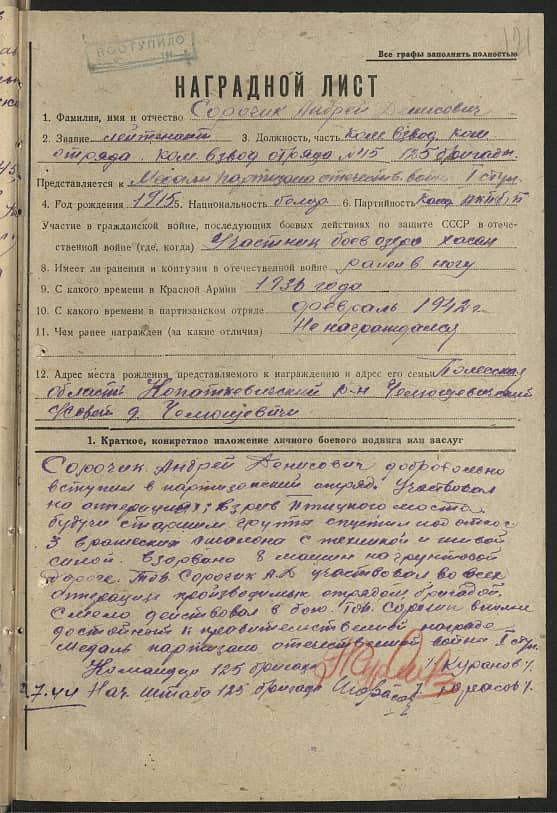 121
ПОСТУПИЛО
Все графы заполнять полностью
НАГРАДНОЙ ЛИСТ
1. Фамилия, имя и отчество Сорочик Андрей Денисович
2. Звание лейтенант 3. Должность, часть Ком. взвод. ком
отряда. Ком. взвод отряда №45 125 бригады.
Представляется к Медали партизана отечеств. войны I стр.
4. Год рождения 1915 5. Национальность 6. Партийность Канд. ВКП(б)
Участие в гражданской войне, последующих боевых действиях по защите СССР в отече-
ственной войне (где, когда) Участник боев озеро Хасан
8. Имеет ли ранения и контузии в отечественной войне ранен в ногу
9. С какого времени в Красной Армии 1936 года
10. С какого времени в партизанском отряде февраль 1942 г.
11. Чем ранее награжден (за какие отличия) Не награждался
12. Адрес места рождения, представляемого к награждению и адрес его семьи Полесская
область Копаткевичский р-н Чемощевичский
д. Чемощевичи
1. Краткое, конкретное изложение личного боевого подвига или заслуг
Сорочик Андрей Денисович добровольно
вступил в партизанский отряд. Участвовал
на операциях: взрыв Птицкого моста
будучи старшим группы спустил под откос
3 вражеских эшелона с техникой и живой
силой. Взорвано 8 машин на грунтовой
дороге. Тов. Сорочик А.Д. участвовал во всех
операциях производимых отрядом, бригадой.
Смело действовал в бою. Тов. Сорочик вполне
достойный к правительственной награде
медаль партизана отечественной войны I стр.
Командир 125 бригады /Куранов/.
7.44 Нач. штаба 125 бригады /Тарасов/.